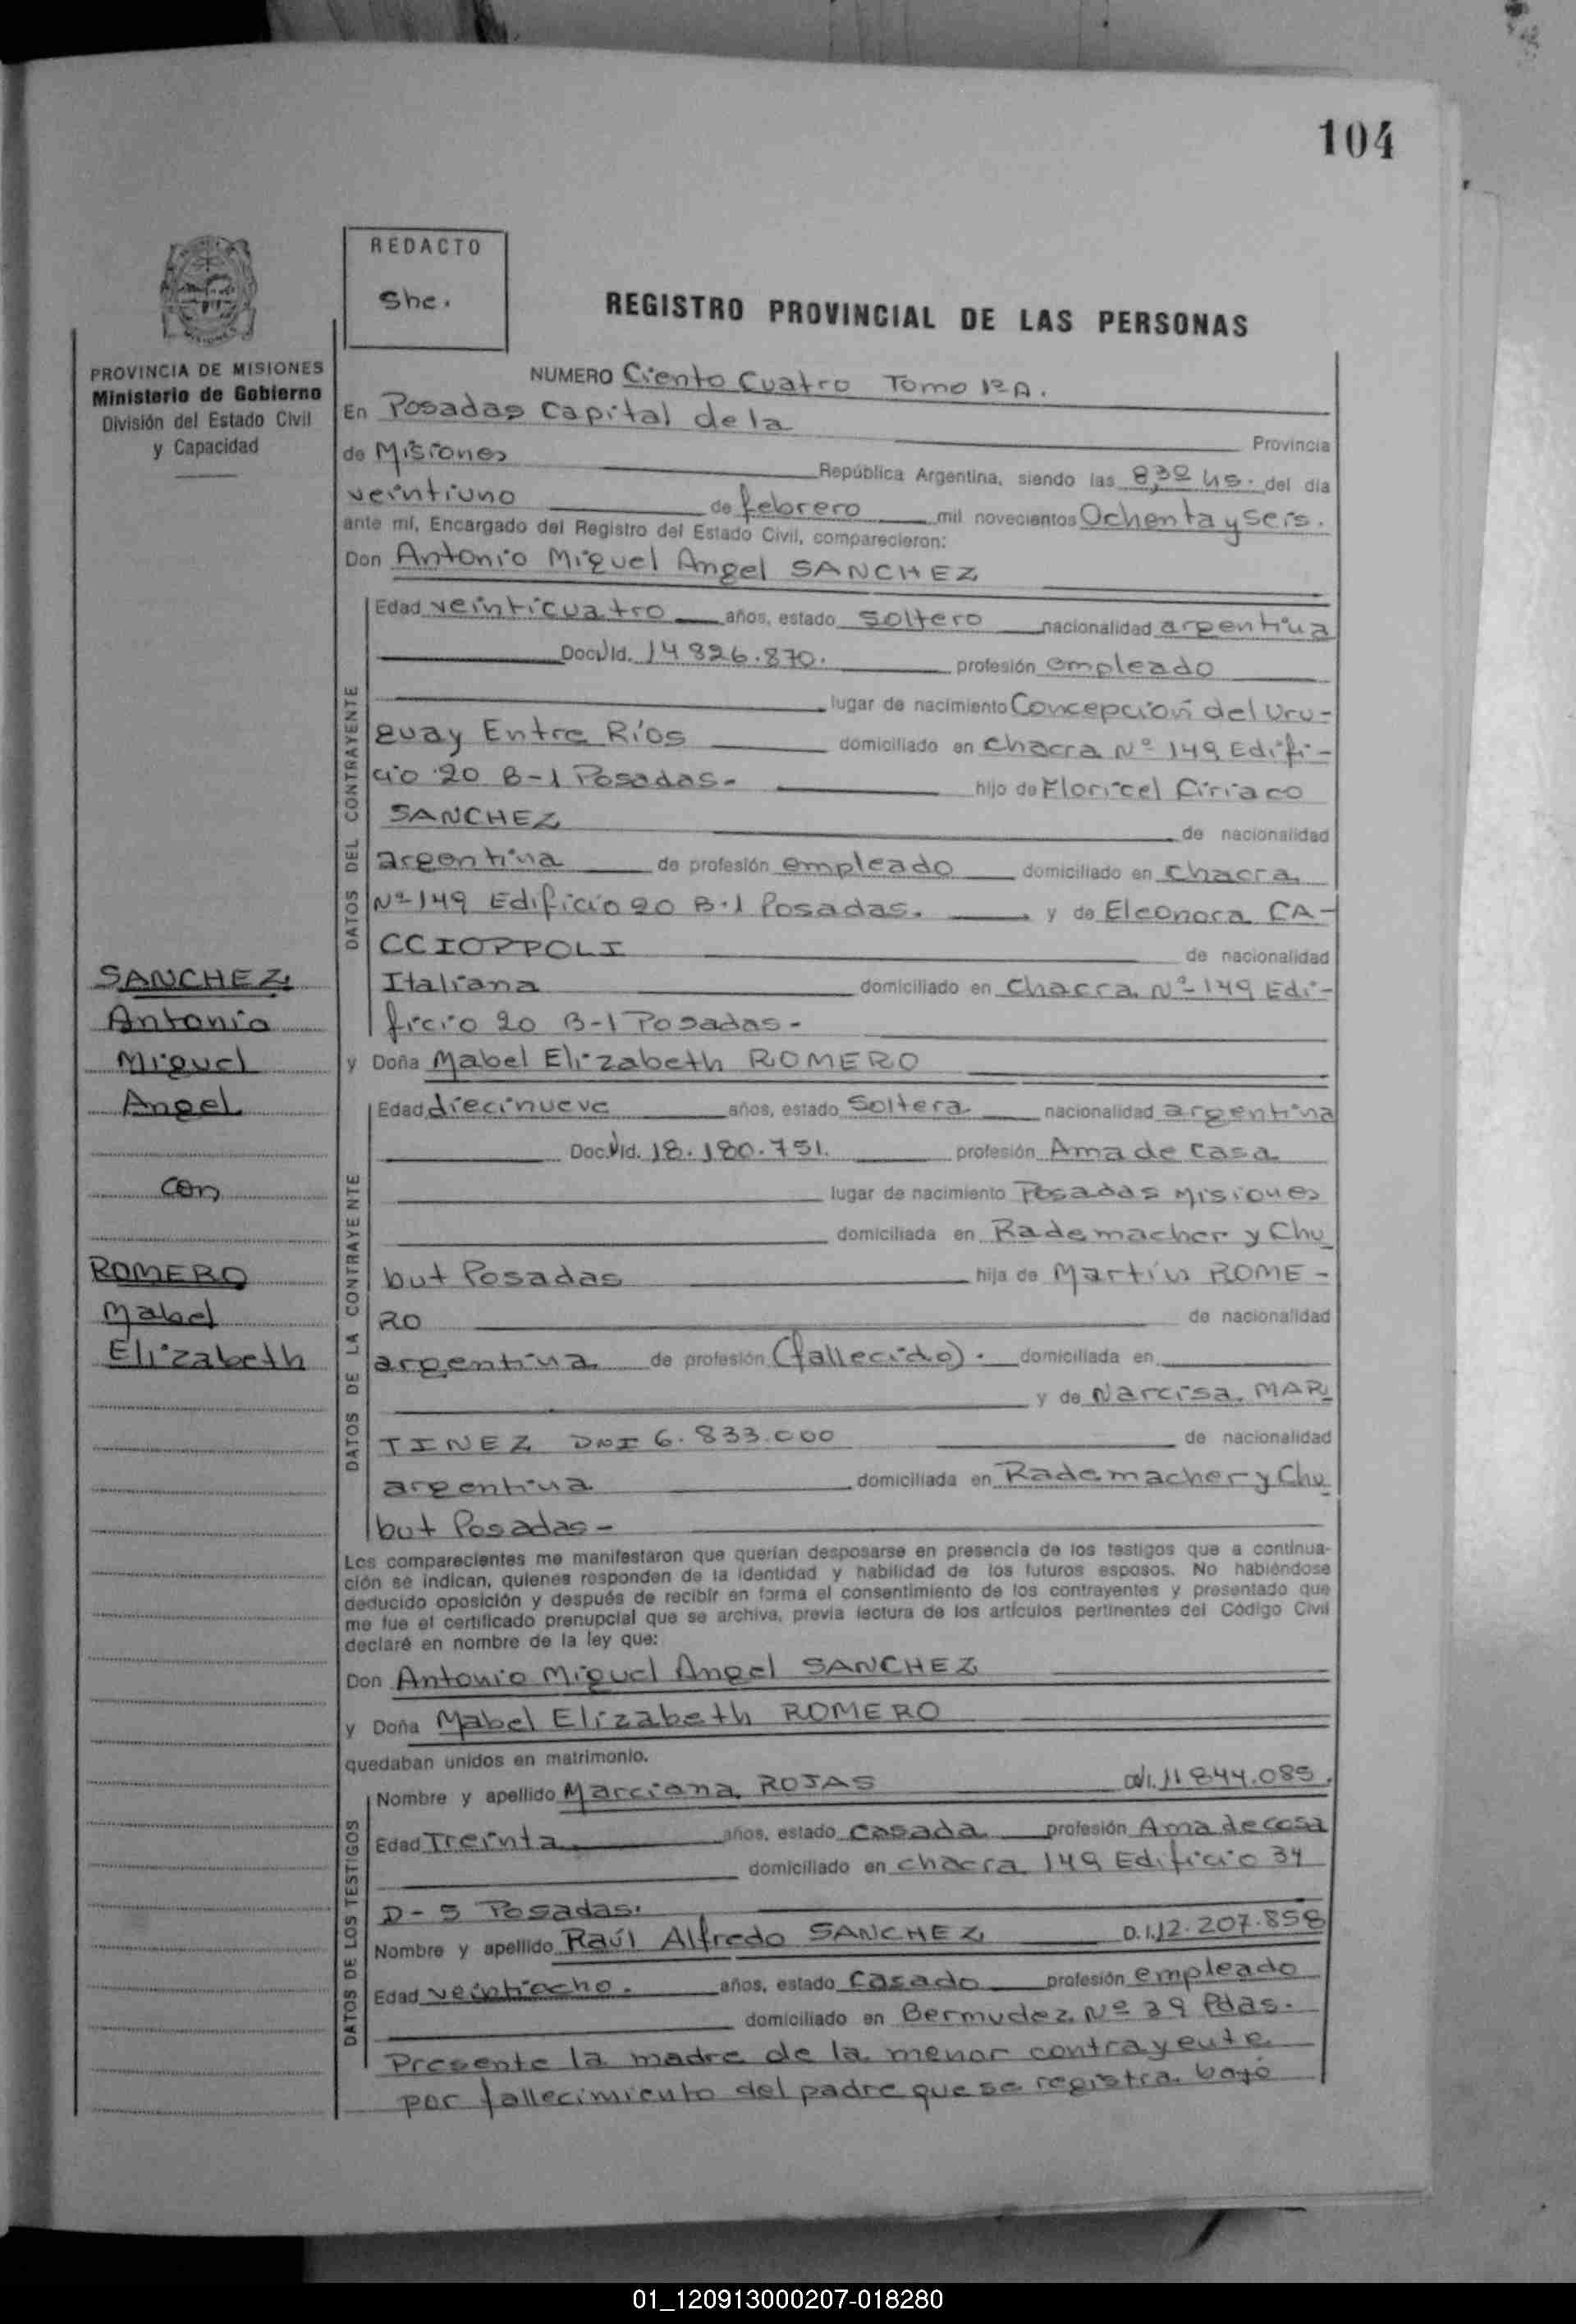 104
REDACTO
She.
REGISTRO PROVINCIAL DE LAS PERSONAS
PROVINCIA DE MISIONES
Ministerio de Gobierno
División del Estado Civil
y Capacidad
NUMERO Ciento Cuatro Tomo 1º A.
En Posadas Capital de la Provincia
de Misiones República Argentina, siendo las 8,30 hs. del día
veintiuno de febrero mil novecientos Ochenta y seis.
ante mí, Encargado del Registro del Estado Civil, comparecieron:
Don Antonio Miguel Angel SANCHEZ
DATOS DEL CONTRAYENTE
Edad veinticuatro años, estado soltero nacionalidad argentina
Doc. Id. 14.826.870. profesión empleado
lugar de nacimiento Concepción del Uru-
guay Entre Ríos domiciliado en Chacra Nº 149 Edifi-
cio 20 B-1 Posadas- hijo de Floricel Ciriaco
SANCHEZ de nacionalidad
argentina de profesión empleado domiciliado en Chacra
Nº 149 Edificio 20 B-1 Posadas. y de Eleonora CA-
CCIOPPOLI de nacionalidad
Italiana domiciliado en Chacra Nº 149 Edi-
ficio 20 B-1 Posadas-
y Doña Mabel Elizabeth ROMERO
SANCHEZ
Antonio
Miguel
Angel
con
ROMERO
Mabel
Elizabeth
DATOS DE LA CONTRAYENTE
Edad diecinueve años, estado Soltera nacionalidad argentina
Doc. Id. 18.180.751. profesión Ama de casa
lugar de nacimiento Posadas Misiones
domiciliada en Rademacher y Chu
but Posadas hija de Martín ROME-
RO de nacionalidad
argentina de profesión (fallecido). domiciliada en
y de Narcisa MAR
TINEZ DNI 6.833.000 de nacionalidad
argentina domiciliada en Rademacher y Chu
but Posadas-
Los comparecientes me manifestaron que querían desposarse en presencia de los testigos que a continua-
ción se indican, quienes responden de la identidad y habilidad de los futuros esposos. No habiéndose
deducido oposición y después de recibir en forma el consentimiento de los contrayentes y presentado que
me fue el certificado prenupcial que se archiva, previa lectura de los artículos pertinentes del Código Civil
declaré en nombre de la ley que:
Don Antonio Miguel Angel SANCHEZ
y Doña Mabel Elizabeth ROMERO
quedaban unidos en matrimonio.
DATOS DE LOS TESTIGOS
Nombre y apellido Marciana ROJAS 11.844.085.
Edad Treinta años, estado casada profesión Ama de casa
domiciliado en chacra 149 Edificio 34
D-5 Posadas.
Nombre y apellido Raúl Alfredo SANCHEZ D.I. 12.207.858
Edad veintiocho. años, estado Casado profesión empleado
domiciliado en Bermudez Nº 39 Pdas.
Presente la madre de la menor contrayente
por fallecimiento del padre que se registra bajo
01_120913000207-018280